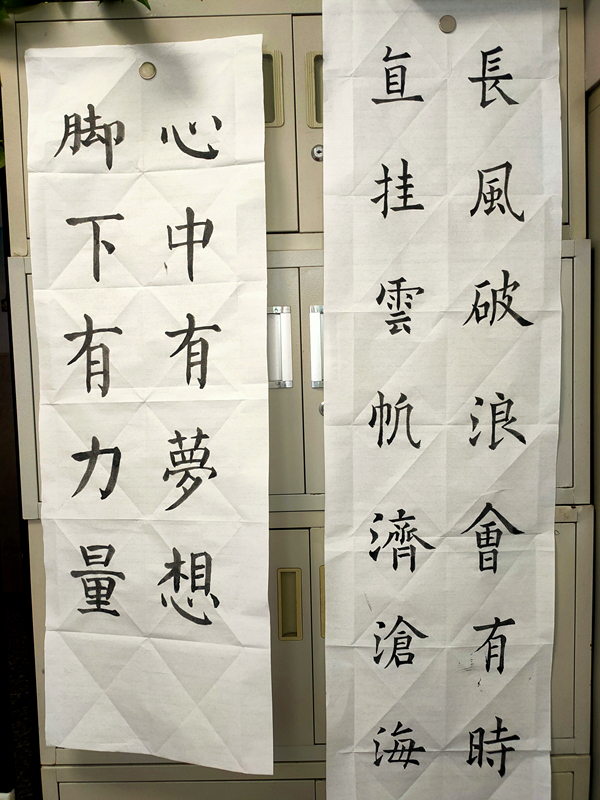 長風破浪會有時
直挂雲帆濟滄海
心中有夢想
脚下有力量